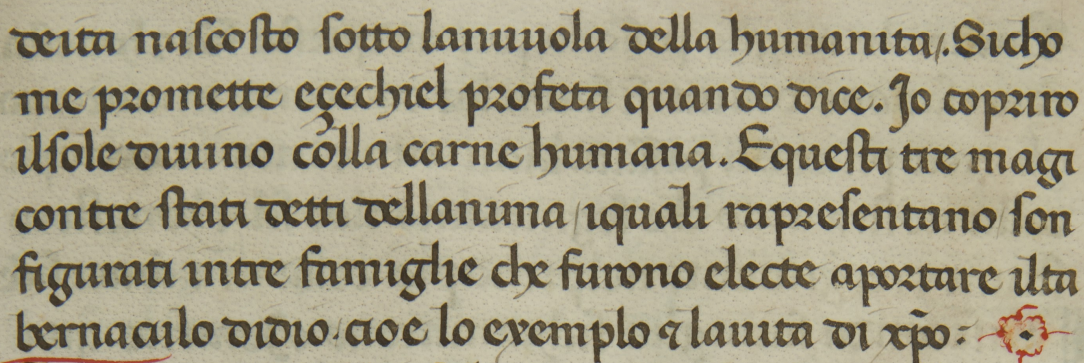 deita nascosto sotto lanuuola della humanita/. Sicho
me promette eçechiel profeta quando dice. Io copriro
ilsole diuino cōlla carne humana. Equesti tre magi
contre stati detti dellanima / iquali rapresentano / son
figurati intre famiglie che furono electe aportare ilta
bernaculo didio. cioe lo exemplo ⁊ lauita di xp̄o: